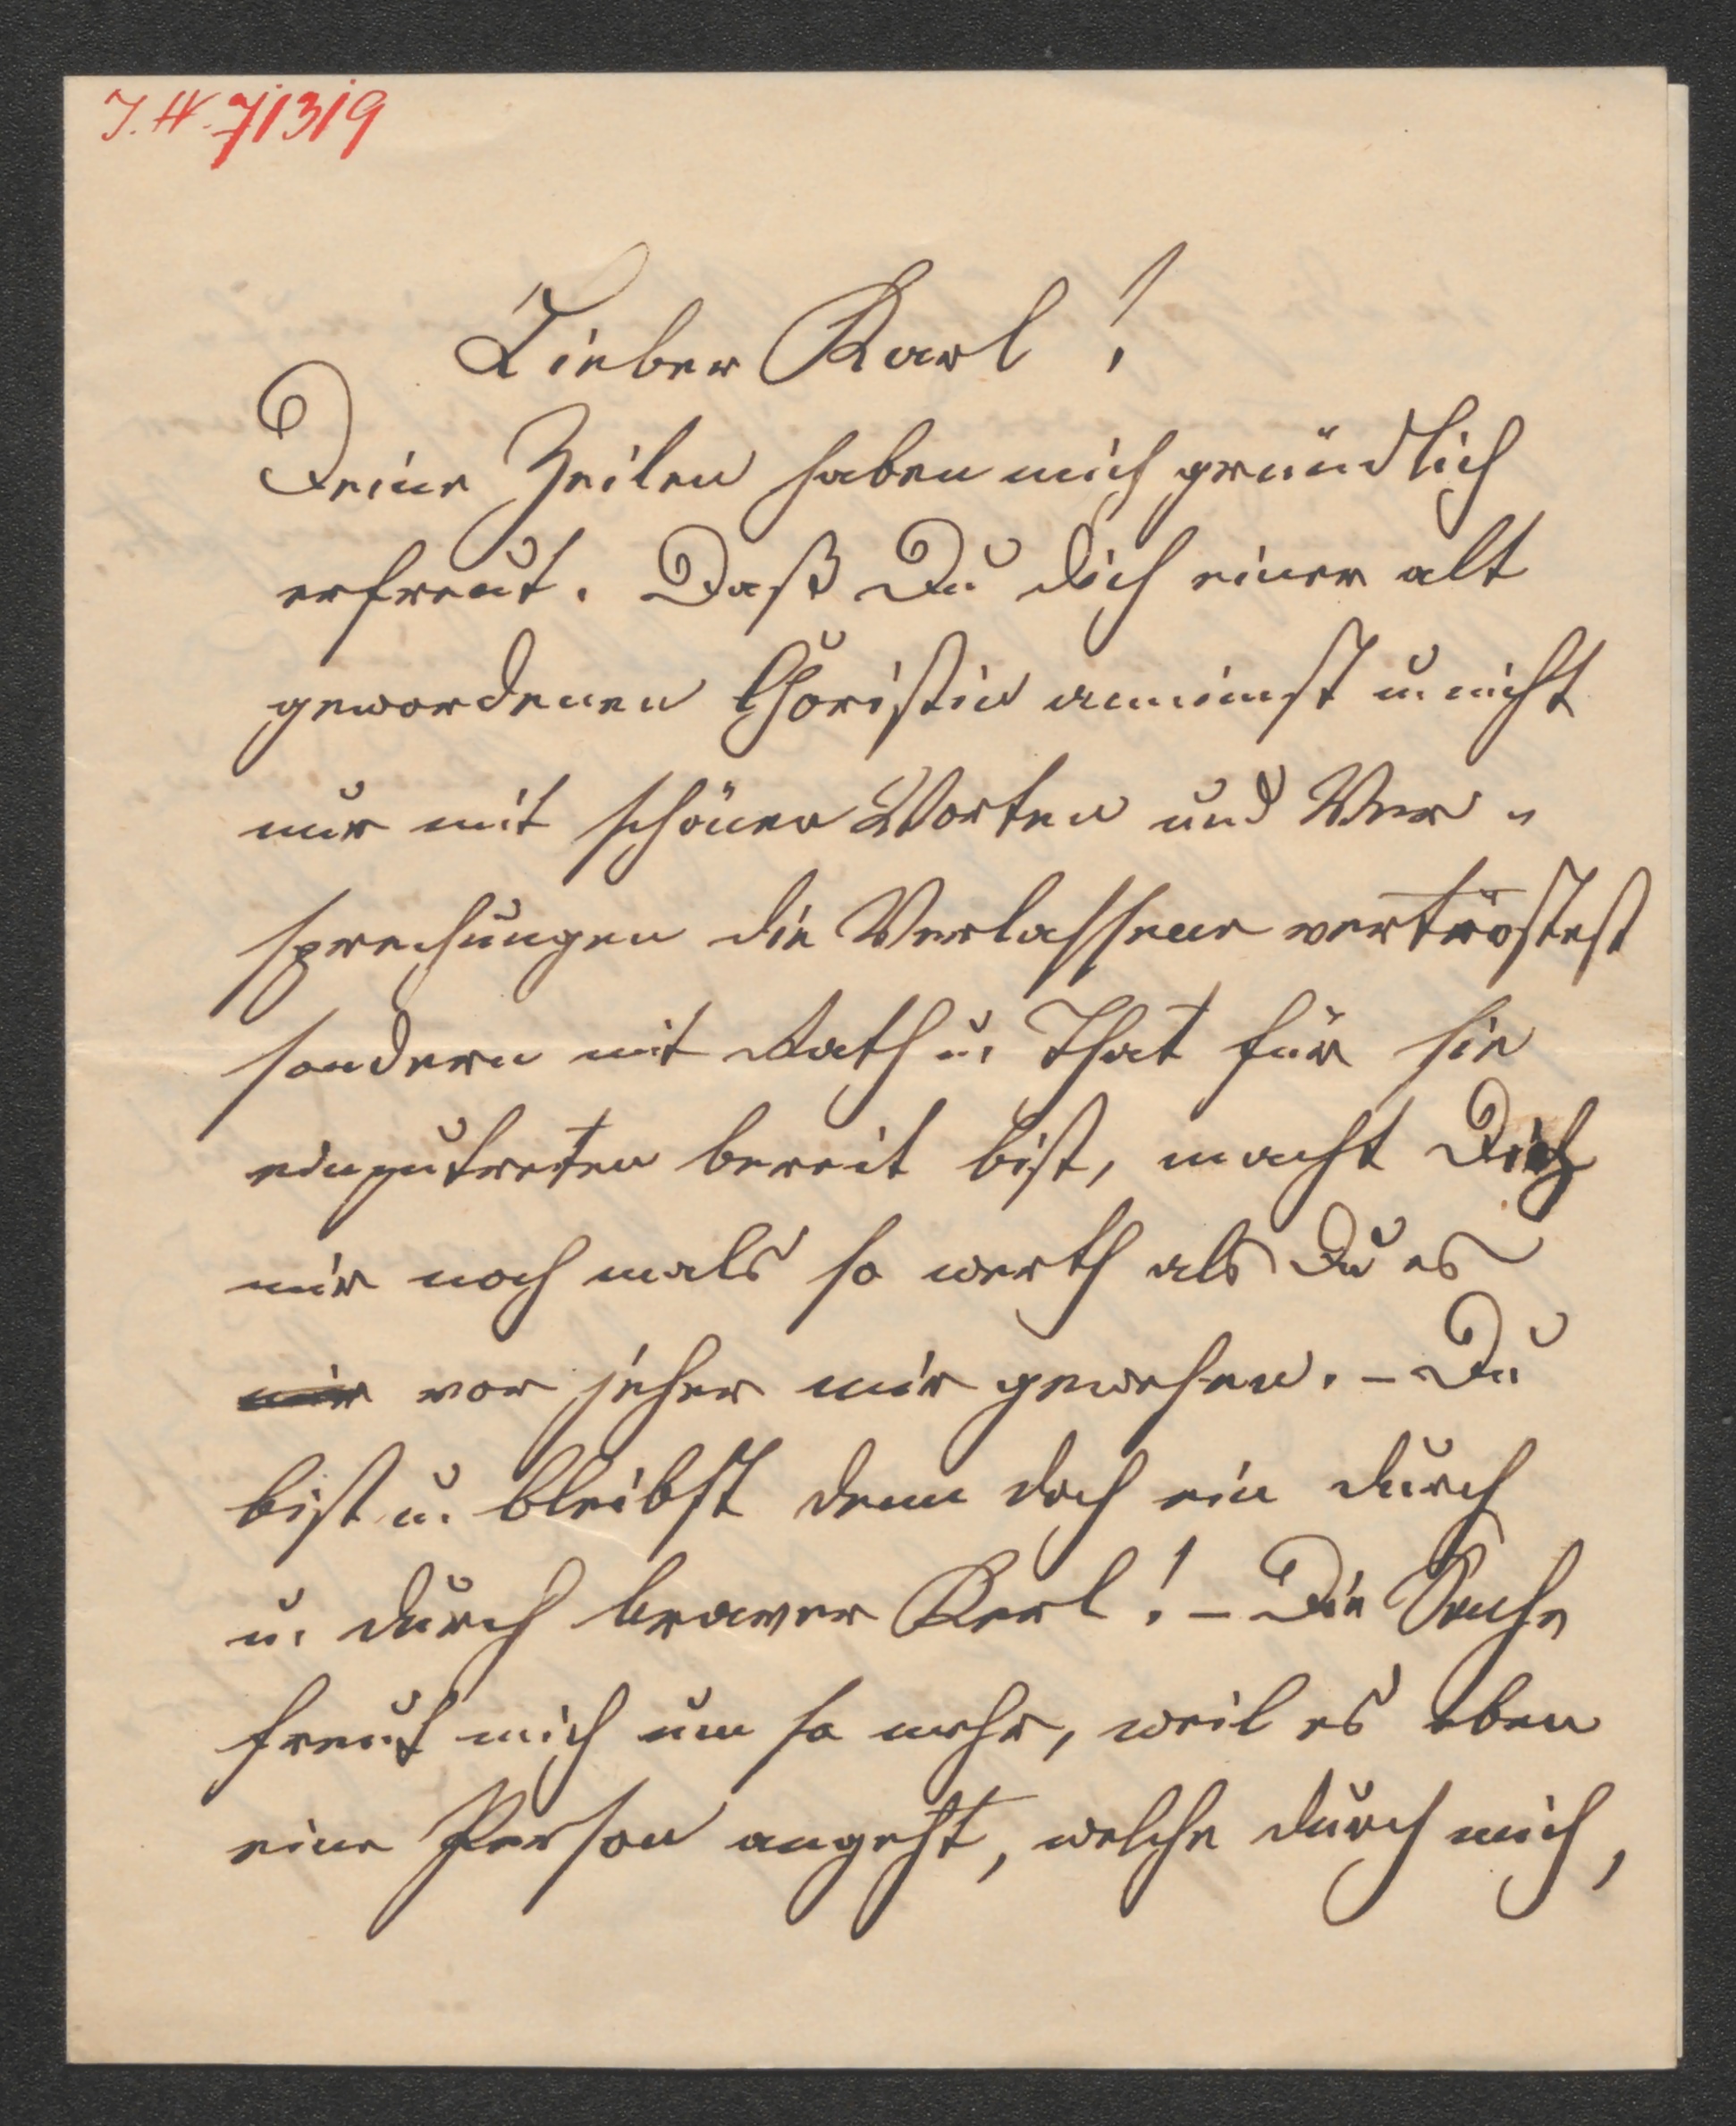 J.N. 71319
Lieber Karl!
Deine Zeilen haben mich gründlich
erfreut. Daß Du dich einer alt
gewordenen Choristin annimst u. nicht
nur mit schönen Worten und Ver-
sprechungen die Verlassene vertröstest
sondern mit Rath u. That für sie
einzutreten bereit bist, macht Dich
mir noch mals so werth als Du es
mir vor jeher mir gewesen. - Du
bist u. bleibst denn doch ein durch
u. durch braver Kerl! - Die Sache
freut mich um so mehr, weil es eben
eine Person angeht, welche durch mich,